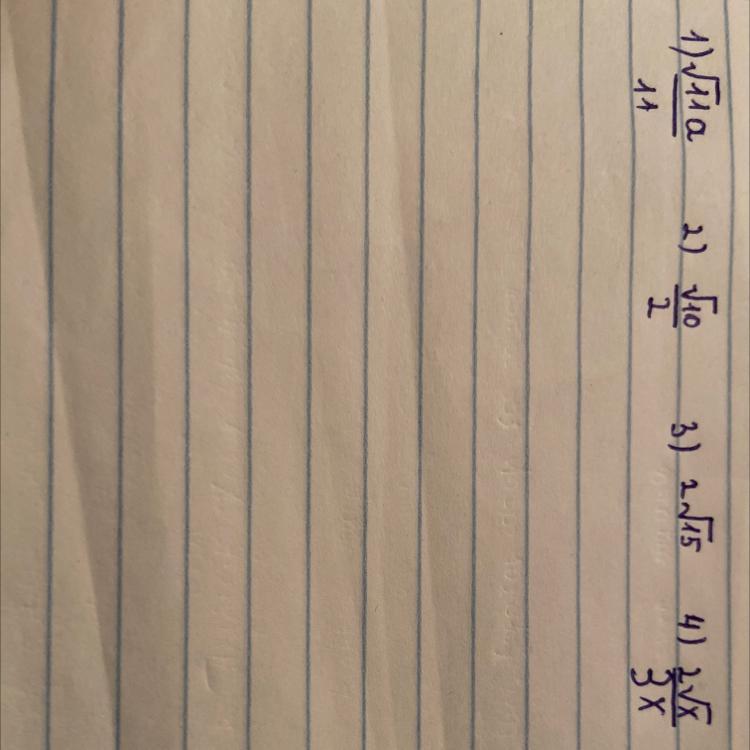 1) √11a/11 2) √10/2 3) 2√15 4) 2√x/3x